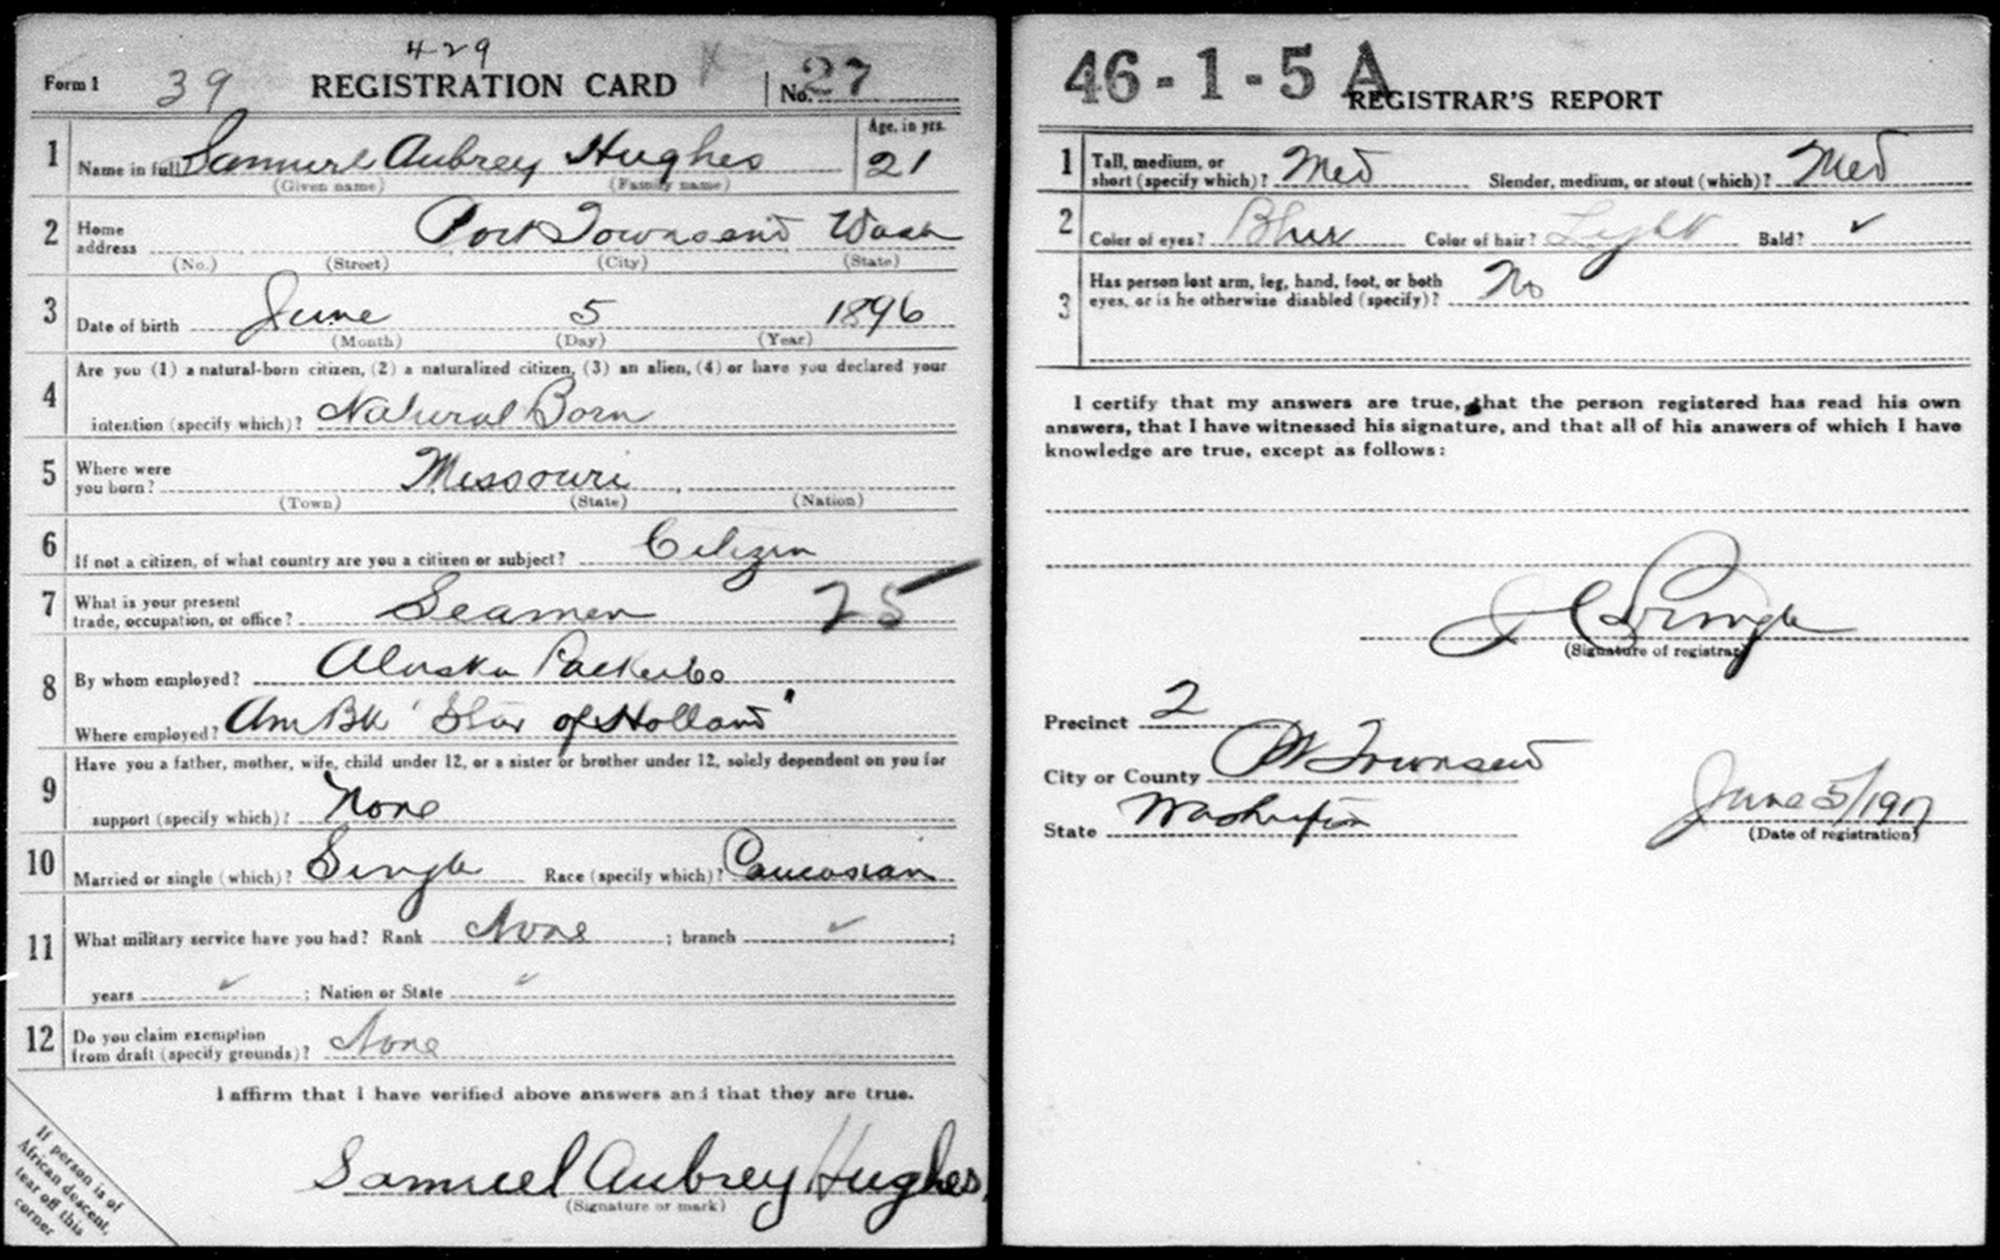 429
Form 1 39 REGISTRATION CARD X No. 27
1 Name in full Samuel Aubrey Hughes Age, in yrs. 21
(Given name) (Family name)
2 Home address Port Townsend Wash
(No.) (Street) (City) (State)
3 Date of birth June 5 1896
(Month) (Day) (Year)
4 Are you (1) a natural-born citizen, (2) a naturalized citizen, (3) an alien, (4) or have you declared your
intention (specify which)? Natural Born
5 Where were you born? Missouri
(Town) (State) (Nation)
6 If not a citizen, of what country are you a citizen or subject? Citizen
7 What is your present trade, occupation, or office? Seamen 25
8 By whom employed? Alaska Packers Co
Where employed? Am Bk "Star of Holland"
9 Have you a father, mother, wife, child under 12, or a sister or brother under 12, solely dependent on you for
support (specify which)? None
10 Married or single (which)? Single Race (specify which)? Caucasian
11 What military service have you had? Rank None ; branch ✓ ;
years ✓ ; Nation or State ✓
12 Do you claim exemption from draft (specify grounds)? None
I affirm that I have verified above answers and that they are true.
Samuel Aubrey Hughes
(Signature or mark)
If person is of
African descent,
tear off this
corner
46-1-5 A
REGISTRAR'S REPORT
1 Tall, medium, or short (specify which)? Med Slender, medium, or stout (which)? Med
2 Color of eyes? Blue Color of hair? Light Bald? ✓
3 Has person lost arm, leg, hand, foot, or both
eyes, or is he otherwise disabled (specify)? No
I certify that my answers are true, that the person registered has read his own
answers, that I have witnessed his signature, and that all of his answers of which I have
knowledge are true, except as follows:
J C Pringle
(Signature of registrar)
Precinct 2
City or County Pt Townsend
State Washington June 5/1917
(Date of registration)